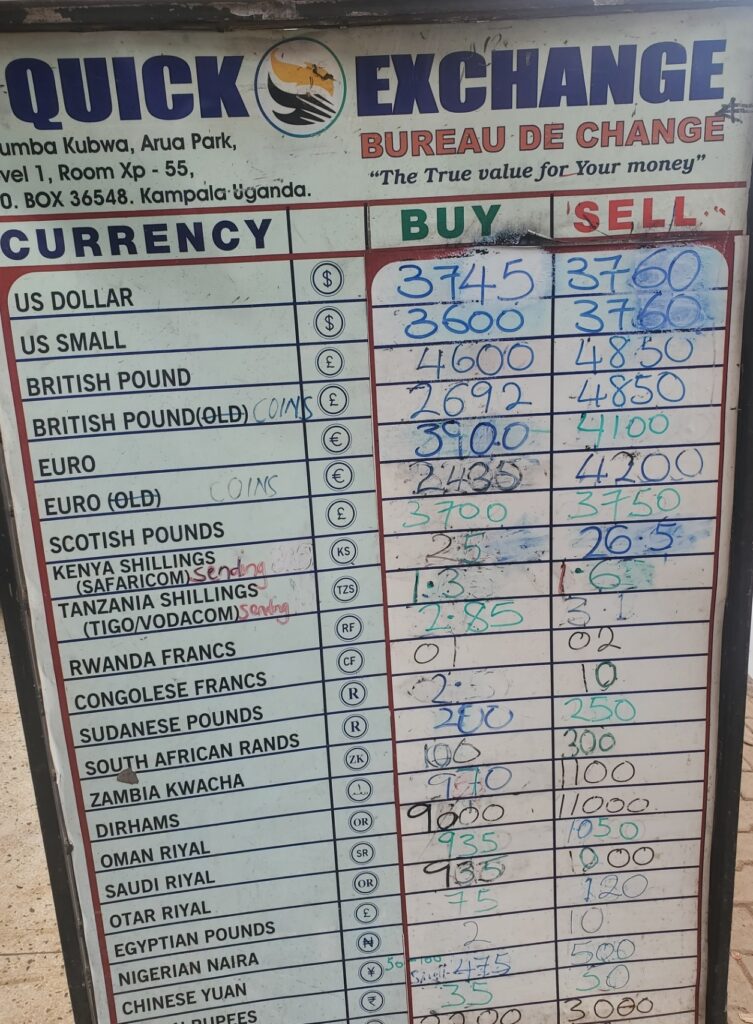 QUICK EXCHANGE
BUREAU DE CHANGE
"The True value for Your money"
umba Kubwa, Arua Park,
vel 1, Room Xp - 55,
O. BOX 36548. Kampala Uganda.
CURRENCY BUY SELL
US DOLLAR $ 3745 3760
US SMALL $ 3600 3760
BRITISH POUND £ 4600 4850
BRITISH POUND(OLD) COINS £ 2692 4850
EURO € 3900 4100
EURO (OLD) COINS € 2435 4200
SCOTISH POUNDS £ 3700 3750
KENYA SHILLINGS KS 25 26.5
(SAFARICOM) sending
TANZANIA SHILLINGS TZS 1.3 1.6
(TIGO/VODACOM) sending
RWANDA FRANCS RF 2.85 3.1
CONGOLESE FRANCS CF 01 02
SUDANESE POUNDS R 2. 10
SOUTH AFRICAN RANDS R 200 250
ZAMBIA KWACHA ZK 100 300
DIRHAMS 970 1100
OMAN RIYAL OR 9600 11000
SAUDI RIYAL SR 935 1050
OTAR RIYAL OR 935 1000
EGYPTIAN POUNDS £ 75 120
NIGERIAN NAIRA ₦ 2 10
CHINESE YUAN ¥ 50-100 475 500
RUPEES ₹ 35 50
3000